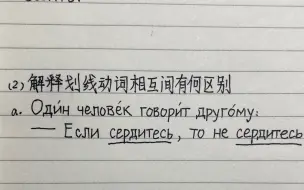 (2) 解释划线动词相互间有何区别
a. Оди́н челове́к говори́т друго́му:
— Если сердитесь, то не сердитесь